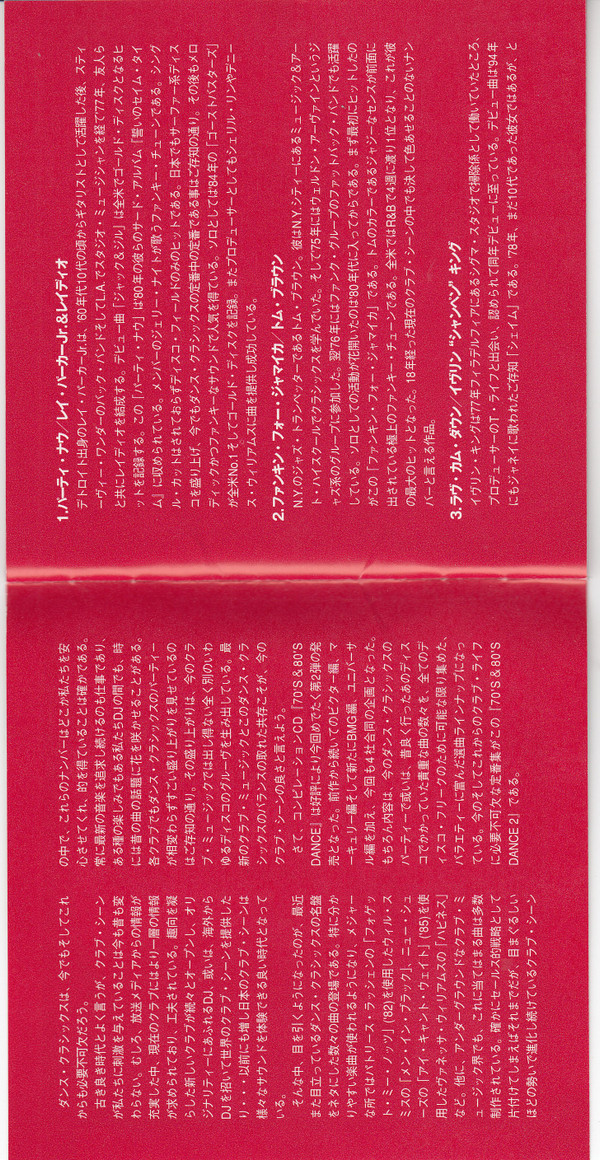 ダンス・クラシックスは、今でもそしてこれ
からも必要不可欠だろう。
古き良き時代とよく言うが、クラブ・シーン
が私たちに刺激を与えていることは今も昔も変
わらない。むしろ、放送メディアからの情報が
充実した中、現在のクラブにはより一層の情報
が求められており、工夫されている。趣向を凝
らした新しいクラブが続々とオープンし、オリ
ジナリティーにあふれるDJ、或いは、海外から
DJを招いて世界のクラブ・シーンを提供した
り・・・以前にも増し日本のクラブ・シーンは
様々なサウンドを体験できる良い時代となって
いる。
そんな中、目を引くようになったのが、最近
また目立っているダンス・クラシックスの名盤
をネタにした数々の曲の登場である。特に分か
りやすい楽曲が使われるようになり、メジャー
な所ではパトリース・ラッシェンの「フォゲッ
ト・ミー・ノッツ」('82)を使用したウィル・ス
ミスの「メン・イン・ブラック」、ニュー・シュ
ーズの「アイ・キャント・ウェイト」('85)を使
用したヴァネッサ・ウィリアムスの「ハピネス」
など。他に、アンダーグラウンドなクラブ・ミ
ュージック界でも、これに当てはまる曲は多数
制作されている。確かにセールス的戦略として
片付けてしまえばそれまでだが、目まぐるしい
ほどの勢いで進化し続けているクラブ・シーン
の中で、これらのナンバーはどこか私たちを安
心させてくれ、的を得ていることは確かである。
常に最新の音楽を追求し続けるのも仕事であり、
ある種の楽しみでもある私たちDJの間でも、時
には昔の曲の話題に花を咲かせることがある。
各クラブでもダンス・クラシックスのパーティー
が相変わらずすごい盛り上がりを見せているの
はご存知の通り。その盛り上がりは、今のクラ
ブ・ミュージックでは出し得ない全く別のいわ
ゆるディスコのグルーヴを生み出している。最
新のクラブ・ミュージックとこのダンス・クラ
シックスのバランスの取れた共存こそが、今の
クラブ・シーンの良さと言えよう。
さて、コンピレーションCD「70'S & 80'S
DANCE」は好評により今回めでたく第2弾の発
売となった。前作から続いてのビクター編、マ
ーキュリー編そして新たにBMG編、ユニバーサ
ル編を加え、今回も4社合同の企画となった。
もちろん内容は、今のダンス・クラシックスの
パーティーで或いは、昔良く行ったあのディス
コでかかっていた貴重な曲の数々を、全てのデ
ィスコ・フリークのために可能な限り集めた、
バラエティーに富んだ選曲ラインナップになっ
ている。今のそしてこれからのクラブ・ライフ
に必要不可欠な定番集がこの「70'S & 80'S
DANCE 2」である。
1. パーティ・ナウ／レイ・パーカーJr.&レイディオ
デトロイト出身のレイ・パーカーJr.は、'60年代10代の頃からギタリストとして活躍した後、スティ
ーヴィー・ワンダーのバック・バンドそしてL.A.でスタジオ・ミュージシャンを経て77年、友人ら
と共にレイディオを結成する。デビュー曲「ジャック&ジル」は全米でゴールド・ディスクとなるヒ
ットを記録する。この「パーティ・ナウ」は'80年の彼らのサード・アルバム「誓いのセイム・タイ
ム」に収められている。メンバーのジェリー・ナイトが歌うファンキー・チューンである。シング
ル・カットはされておらずディスコ・フィールドのみのヒットである。日本でもサーファー系ディス
コを盛り上げ、今でもダンス・クラシックスの定番中の定番である事はご存知の通り。その後もメロ
ディックかつファンキーなサウンドで人気を得ている。ソロとしては'84年の「ゴーストバスターズ」
が全米No.1そしてゴールド・ディスクを記録。またプロデューサーとしてもシェリル・リンやデニー
ス・ウィリアムスに曲を提供し成功している。
2. ファンキン・フォー・ジャマイカ／トム・ブラウン
N.Y.のジャズ・トランペッターであるトム・ブラウン。彼はN.Y.シティーにあるミュージック&アー
ト・ハイスクールでクラシックスを学んでいた。そして75年にはウェルドン・アーヴァインというジ
ャズ系のグループに参加した。翌76年にはファンク・グループのファットバック・バンドでも活躍
している。ソロとしての活動が花開いたのは'80年代に入ってからである。まず最初にヒットしたの
がこの「ファンキン・フォー・ジャマイカ」である。トムのカラーであるジャジーなセンスが前面に
出されている極上のファンキー・チューンである。全米ではR&Bで4週に渡り1位となり、これが彼
の最大のヒットとなった。18年経った現在のクラブ・シーンの中でも決して色あせることのないナン
バーと言える作品。
3. ラヴ・カム・ダウン／イヴリン“シャンペン”キング
イヴリン・キングは'77年フィラデルフィアにあるシグマ・スタジオで掃除係として働いていたところ、
プロデューサーのT. ライフと出会い、認められて同年デビューに至っている。デビュー曲は'94年
にもジャネイに歌われたご存知「シェイム」である。'78年、まだ10代であった彼女ではあるが、と